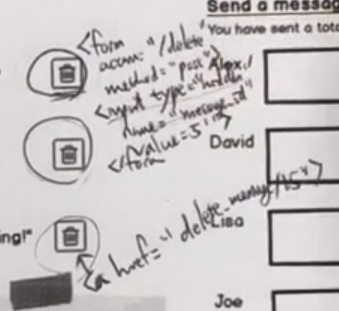 Send a messag
You have sent a tota
<form
action="/delete"
method="post">
Alex
<input type="hidden"
name="message_id"
value=5">
</form
David
<a href="delete_message/15">
ing!"
Lisa
Joe